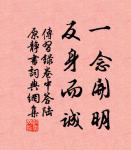 一念開明
反身而誠
傳習錄卷中答陸
原靜書詞典網集